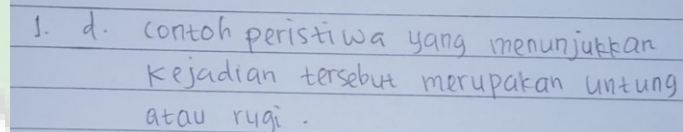 1. d. contoh peristiwa yang menunjukkan
kejadian tersebut merupakan untung
atau rugi.